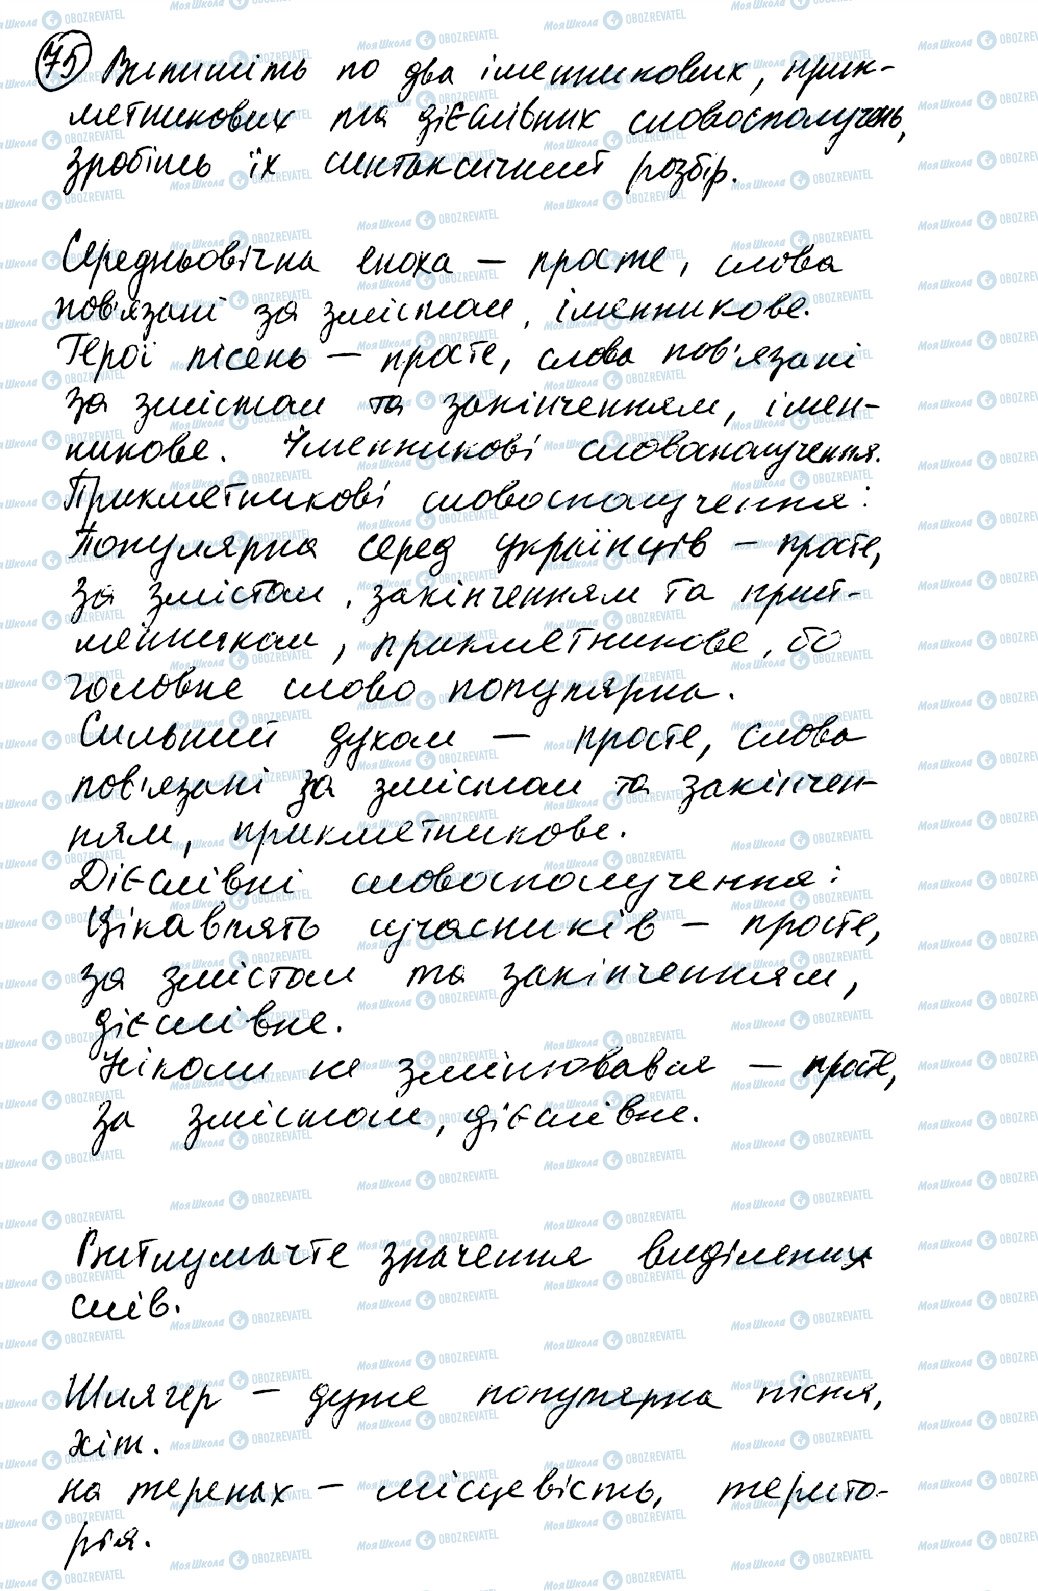 75 Випишіть по два іменникових, прик-
метникових та дієслівних словосполучень,
зробіть їх синтаксичний розбір.
Середньовічна епоха – просте, слова
пов'язані за змістом, іменникове.
Герої пісень – просте, слова пов'язані
за змістом та закінченням, імен-
никове. Іменникові словосполучення.
Прикметникові словосполучення:
Популярна серед українців – просте,
за змістом, закінченням та прий-
менником, прикметникове, бо
головне слово популярна.
Сильний духом – просте, слова
пов'язані за змістом та закінчен-
ням, прикметникове.
Дієслівні словосполучення:
Цікавлять сучасників – просте,
за змістом та закінченням,
дієслівне.
Ніколи не змінювався – просте,
за змістом, дієслівне.
Витлумачте значення виділених
слів.
Шлягер – дуже популярна пісня,
хіт.
на теренах – місцевість, терито-
рія.